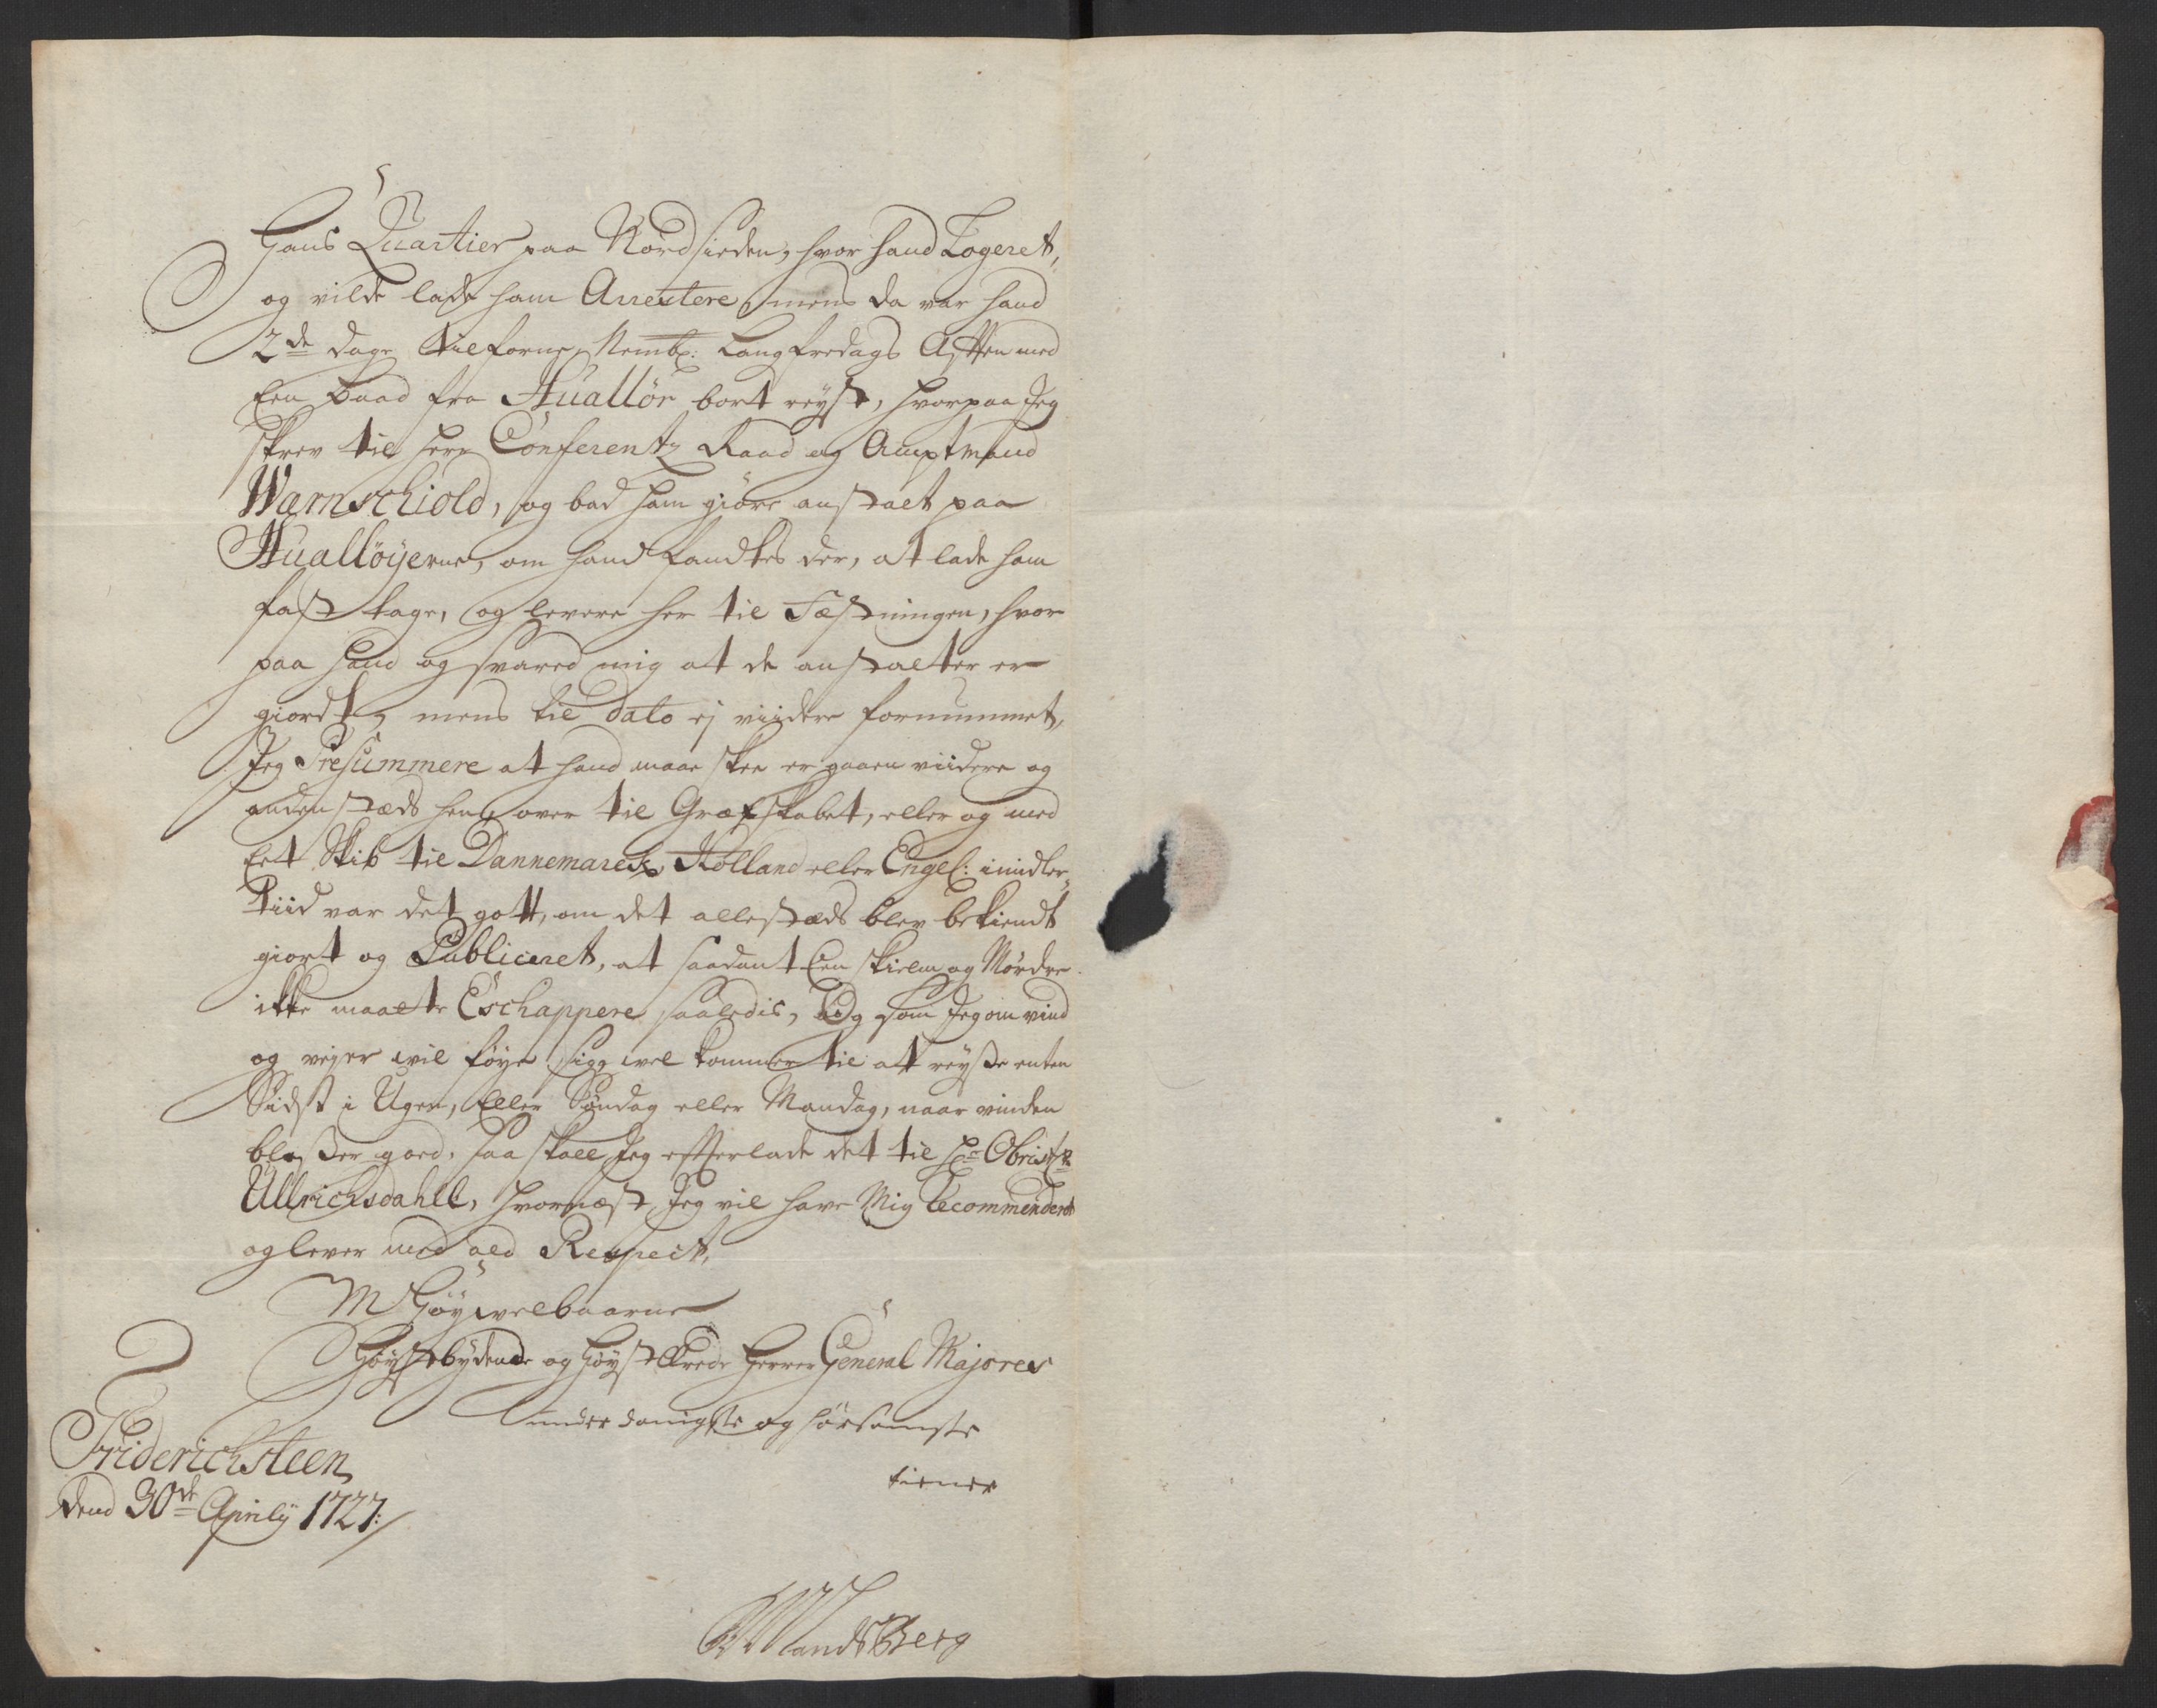 Hans Quartier paa Nordsieden, hvor hand Logeret,
og vilde lade ham Arrestere, mens da var hand
2de dage tilforne, Nembl: Langfredags Afften med
Een baad fra Huallör bort reyst, hvorpaa Jeg
skrev til herr Conferentz Raad og Amptmand
Wærnschiold, og bad ham giöre anstalt paa
Huallöyerne, om hand fandtes der, at lade ham
fast tage, og levere her til Fæstningen, hvor
paa hand og svared mig at de anstalter er
giordt, mens til dato ej viidere fornummet,
Jeg Presummere at hand maa skee er gaaen viidere og
andenstæds hen, over til Græfskabet, eller og med
Eet Skib til Dannemarck, Holland eller Engel: imidler„
tiid var det gott, om det allestæds blev bekiendt
giort og Publiceret, at saadant Een skielm og Mordre
ikke maatte Eschappere saaledis, Og som Jeg om vind
og vejer vil föye sig, vel kommer til att reyse enten
Sidst i Ugen, Eller Söndag eller Mandag, naar vinden
blæser goed, saa skall Jeg efterlade det til Hr Obriste
Ullrichsdahll, hvornæst Jeg vil have Mig Recommenderet
og lever med all Respect,
Höywelbaarne
Höystbydende og Höyst Ærede Herrer General Majores
underdanigste og hörsamste
tiener
Friderichsteen
Dend 30de Aprily 1727:/
LandsBerg